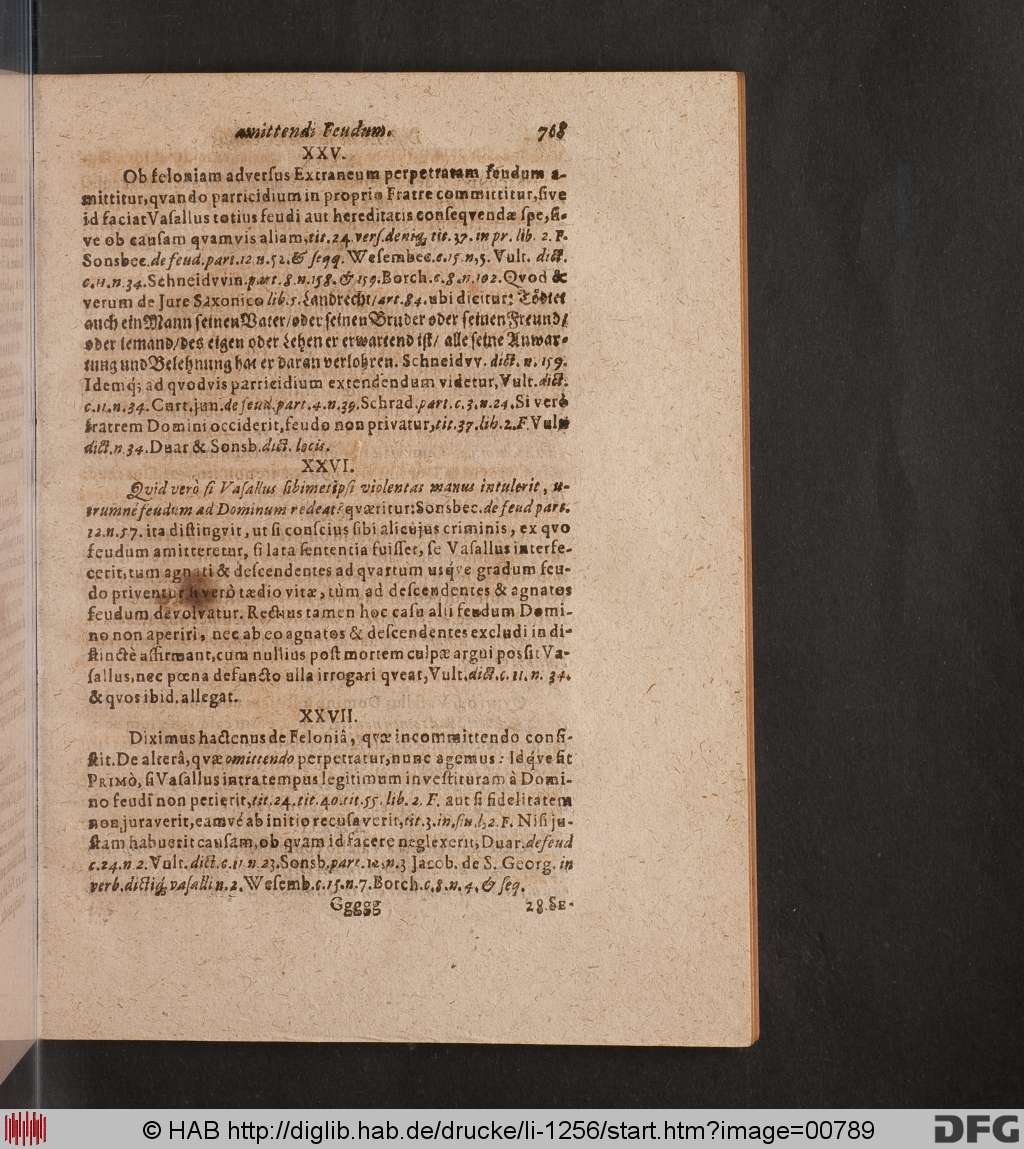 amittendi Feudum. 768
XXV.
Ob feloniam adverſus Extraneum perpetratam feudum a-
mittitur, qvando parricidium in proprio Fratre committitur, ſive
id faciat Vaſallus totius feudi aut hereditatis conſeqvendæ ſpe, ſi-
ve ob cauſam qvamvis aliam, tit. 24. verſ. deniq; tit. 37. in pr. lib. 2. F.
Sonsbec. de feud. part. 12. n. 52. & ſeqq. Weſembec. c. 15. n, 5. Vult. dict.
c. 11. n. 34. Schneidvvin. part. 8. n. 158. & 159. Borch. c. 8. n. 102. Qvod &
verum de Jure Saxonico lib. 5. Landrecht / art. 84. ubi dicitur: Tödtet
auch ein Mann ſeinen Vater / oder ſeinen Bruder oder ſeinen Freund /
oder iemand / des eigen oder Lehen er erwartend iſt / alle ſeine Anwar-
tung und Belehnung hat er daran verlohren. Schneidvv. dict. n. 159.
Idemq; ad qvodvis parricidium extendendum videtur, Vult. dict.
c. 11. n. 34. Curt. jun. de feud. part. 4. n. 39. Schrad. part. c. 3. n. 24. Si verò
fratrem Domini occiderit, feudo non privatur, tit. 37. lib. 2. F. Vult
dict. n. 34. Duar & Sonsb. dict. locis.
XXVI.
Qvid verò ſi Vaſallus ſibimetipſi violentas manus intulerit, u-
trumne feudum ad Dominum redeat? qværitur: Sonsbec. de feud part.
12. n. 57. ita diſtingvit, ut ſi conſcius ſibi alicujus criminis, ex qvo
feudum amitteretur, ſi lata ſententia fuiſſet, ſe Vaſallus interfe-
cerit, tum agnati & deſcendentes ad qvartum usq́ve gradum feu-
do priventur ſi verò tædio vitæ, tùm ad deſcendentes & agnatos
feudum devolvatur. Rectius tamen hoc caſu alii feudum Domi-
no non aperiri, nec ab eo agnatos & deſcendentes excludi indi-
ſtinctè affirmant, cum nullius poſt mortem culpæ argui poſſit Va-
ſallus, nec pœna defuncto ulla irrogari qveat, Vult. dict. c. 11. n. 34.
& qvos ibid. allegat.
XXVII.
Diximus hactenus de Feloniâ, qvæ in committendo conſi-
ſtit. De alterâ, qvæ omittendo perpetratur, nunc agemus: Idq́ve fit
PRIMÒ, ſi Vaſallus intra tempus legitimum inveſtituram à Domi-
no feudi non petierit, tit. 24. tit. 40. tit. 55. lib. 2. F. aut ſi fidelitatem
non juraverit, eamvé ab initio recuſaverit, tit. 3. in fin. l, 2. F. Niſi ju-
ſtam habuerit cauſam, ob qvam id facere neglexerit, Duar. de feud
c. 24. n 2. Vult. dict. c. 11. n. 23. Sonsb. part. 12, n. 3 Jacob. de S. Georg. in
verb. dictiq; vaſalli n. 2. Weſemb. c. 15. n. 7. Borch. c, 8. n. 4. & ſeq.
Ggggg 28. SE-
© HAB http://diglib.hab.de/drucke/li-1256/start.htm?image=00789 DFG